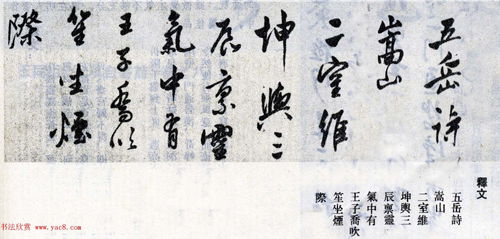 五岳詩
嵩山
二室維
坤輿三
辰稟靈
氣中有
王子喬吹
笙坐煙
際
釋文
五岳詩
嵩山
二室維
坤輿三
辰稟靈
氣中有
王子喬吹
笙坐煙
際
书法欣赏 www.yac8.com